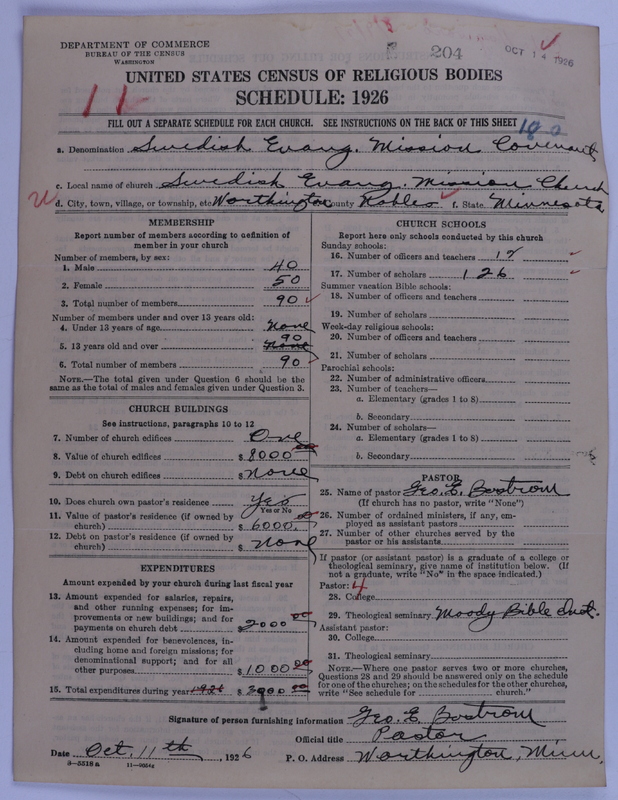 DEPARTMENT OF COMMERCE
BUREAU OF THE CENSUS
WASHINGTON
204
OCT 14 1926
UNITED STATES CENSUS OF RELIGIOUS BODIES
SCHEDULE: 1926
FILL OUT A SEPARATE SCHEDULE FOR EACH CHURCH. SEE INSTRUCTIONS ON THE BACK OF THIS SHEET
a. Denomination Swedish Evang. Mission Covenant
c. Local name of church Swedish Evang. Mission Church
d. City, town, village, or township, etc. Worthington County Nobles f. State Minnesota
MEMBERSHIP
Report number of members according to definition of
member in your church
Number of members, by sex:
1. Male 40
2. Female 50
3. Total number of members 90
Number of members under and over 13 years old:
4. Under 13 years of age None
90
5. 13 years old and over None
6. Total number of members 90
NOTE.—The total given under Question 6 should be the
same as the total of males and females given under Question 3.
CHURCH BUILDINGS
See instructions, paragraphs 10 to 12
7. Number of church edifices One
8. Value of church edifices $ 8000 00
9. Debt on church edifices $ None
10. Does church own pastor's residence Yes
Yes or No
11. Value of pastor's residence (if owned by
church) $ 6000. 00
12. Debt on pastor's residence (if owned by
church) $ None
EXPENDITURES
Amount expended by your church during last fiscal year
13. Amount expended for salaries, repairs,
and other running expenses; for im-
provements or new buildings; and for
payments on church debt $ 2000 00
14. Amount expended for benevolences, in-
cluding home and foreign missions; for
denominational support; and for all
other purposes $ 1000 00
15. Total expenditures during year 1926 $ 3000 00
CHURCH SCHOOLS
Report here only schools conducted by this church
Sunday schools:
16. Number of officers and teachers 17
17. Number of scholars 126
Summer vacation Bible schools:
18. Number of officers and teachers
19. Number of scholars
Week-day religious schools:
20. Number of officers and teachers
21. Number of scholars
Parochial schools:
22. Number of administrative officers
23. Number of teachers—
a. Elementary (grades 1 to 8)
b. Secondary
24. Number of scholars—
a. Elementary (grades 1 to 8)
b. Secondary
PASTOR
25. Name of pastor Geo. E. Bostrom
(If church has no pastor, write "None")
26. Number of ordained ministers, if any, em-
ployed as assistant pastors
27. Number of other churches served by the
pastor or his assistants
If pastor (or assistant pastor) is a graduate of a college or
theological seminary, give name of institution below. (If
not a graduate, write "No" in the space indicated.)
Pastor: 4
28. College
29. Theological seminary Moody Bible Inst.
Assistant pastor:
30. College
31. Theological seminary
NOTE.—Where one pastor serves two or more churches,
Questions 28 and 29 should be answered only on the schedule
for one of the churches; on the schedules for the other churches,
write "See schedule for church."
Signature of person furnishing information Geo. E. Bostrom
Official title Pastor
Date Oct. 11th, 1926 P. O. Address Worthington, Minn.
8-5518 a